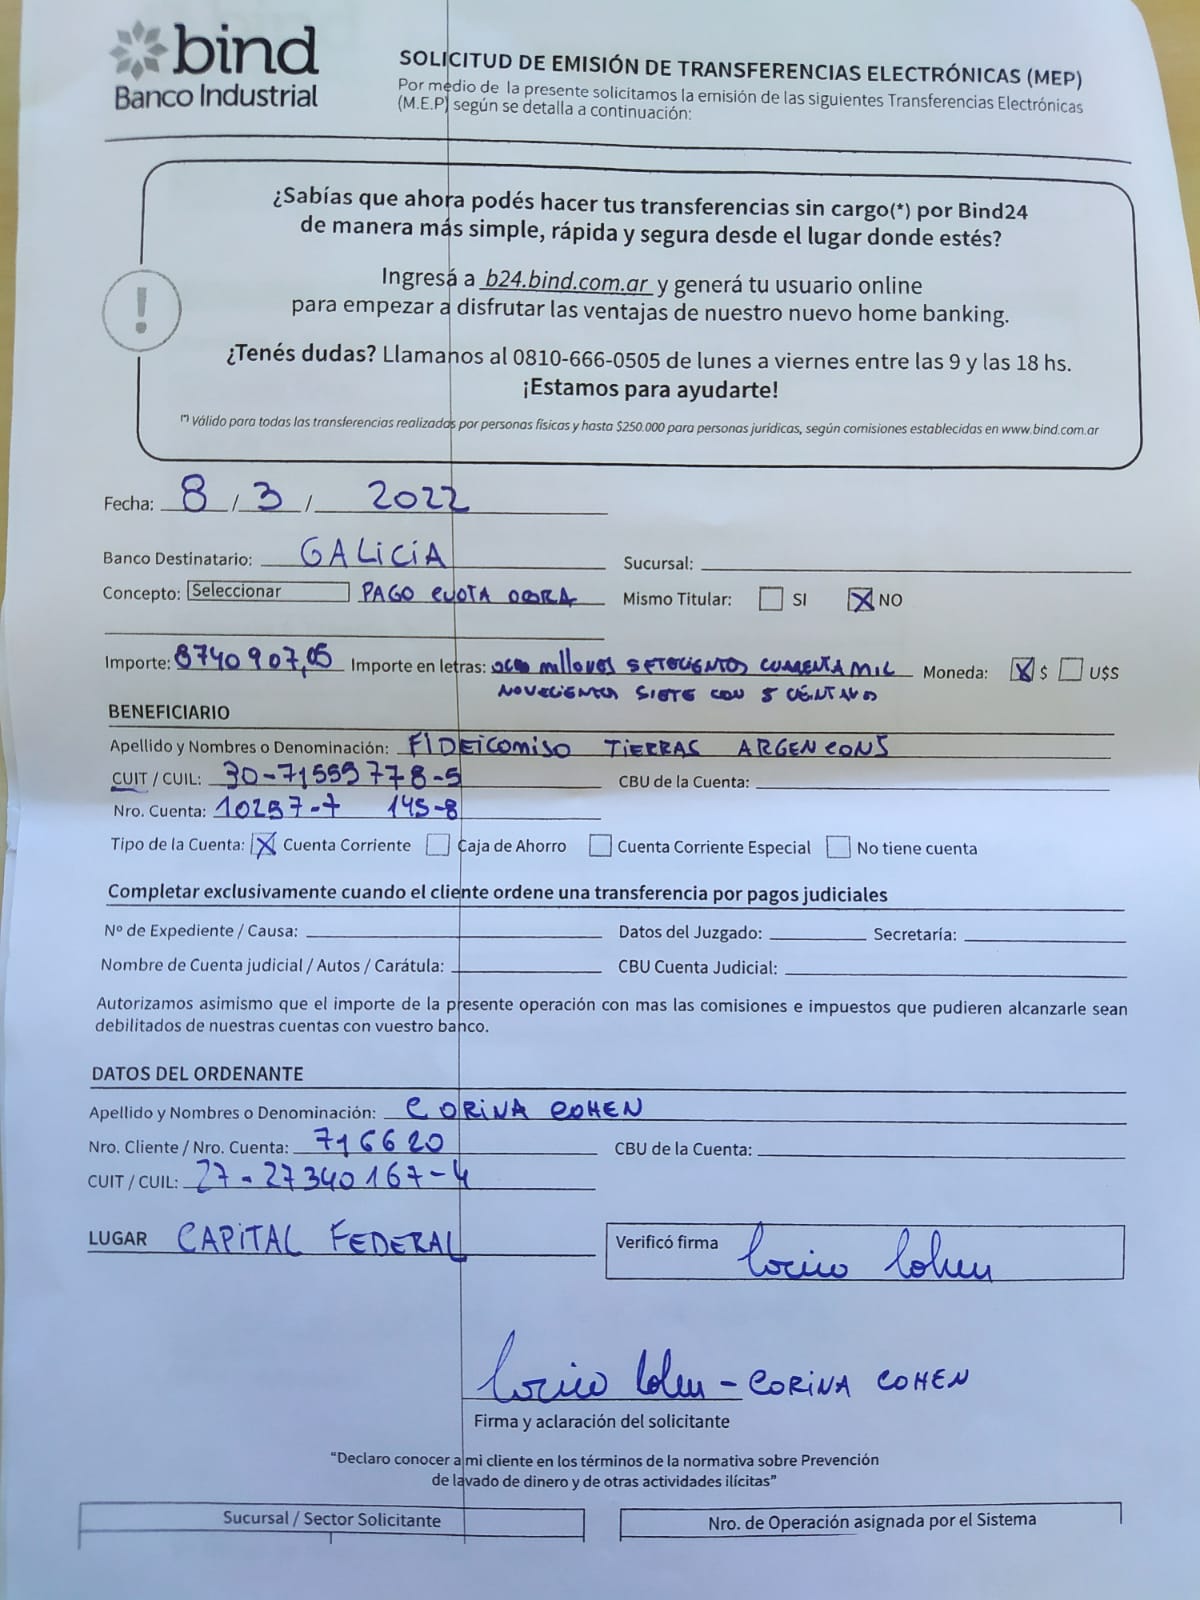 bind
Banco Industrial
SOLICITUD DE EMISIÓN DE TRANSFERENCIAS ELECTRÓNICAS (MEP)
Por medio de la presente solicitamos la emisión de las siguientes Transferencias Electrónicas
(M.E.P) según se detalla a continuación:
¿Sabías que ahora podés hacer tus transferencias sin cargo(*) por Bind24
de manera más simple, rápida y segura desde el lugar donde estés?
Ingresá a b24.bind.com.ar y generá tu usuario online
para empezar a disfrutar las ventajas de nuestro nuevo home banking.
¿Tenés dudas? Llamanos al 0810-666-0505 de lunes a viernes entre las 9 y las 18 hs.
¡Estamos para ayudarte!
(*) Válido para todas las transferencias realizadas por personas físicas y hasta $250.000 para personas jurídicas, según comisiones establecidas en www.bind.com.ar
Fecha: 8 / 3 / 2022
Banco Destinatario: GALICIA Sucursal:
Concepto: Seleccionar PAGO CUOTA OBRA Mismo Titular: SI X NO
Importe: 8740907,05 Importe en letras: ocho millones SETECIENTOS CUARENTA MIL Moneda: X $ U$S
NOVECIENTOS SIETE CON 5 CENTAVOS
BENEFICIARIO
Apellido y Nombres o Denominación: FIDEICOMISO TIERRAS ARGENCONS
CUIT / CUIL: 30-71559778-5 CBU de la Cuenta:
Nro. Cuenta: 10297-7 145-8
Tipo de la Cuenta: X Cuenta Corriente Caja de Ahorro Cuenta Corriente Especial No tiene cuenta
Completar exclusivamente cuando el cliente ordene una transferencia por pagos judiciales
Nº de Expediente / Causa: Datos del Juzgado: Secretaría:
Nombre de Cuenta judicial / Autos / Carátula: CBU Cuenta Judicial:
Autorizamos asimismo que el importe de la presente operación con mas las comisiones e impuestos que pudieren alcanzarle sean
debilitados de nuestras cuentas con vuestro banco.
DATOS DEL ORDENANTE
Apellido y Nombres o Denominación: CORINA COHEN
Nro. Cliente / Nro. Cuenta: 716620 CBU de la Cuenta:
CUIT / CUIL: 27-27340167-4
LUGAR CAPITAL FEDERAL
Verificó firma Corina Cohen
Corina Cohen - CORINA COHEN
Firma y aclaración del solicitante
"Declaro conocer a mi cliente en los términos de la normativa sobre Prevención
de lavado de dinero y de otras actividades ilícitas"
Sucursal / Sector Solicitante
Nro. de Operación asignada por el Sistema